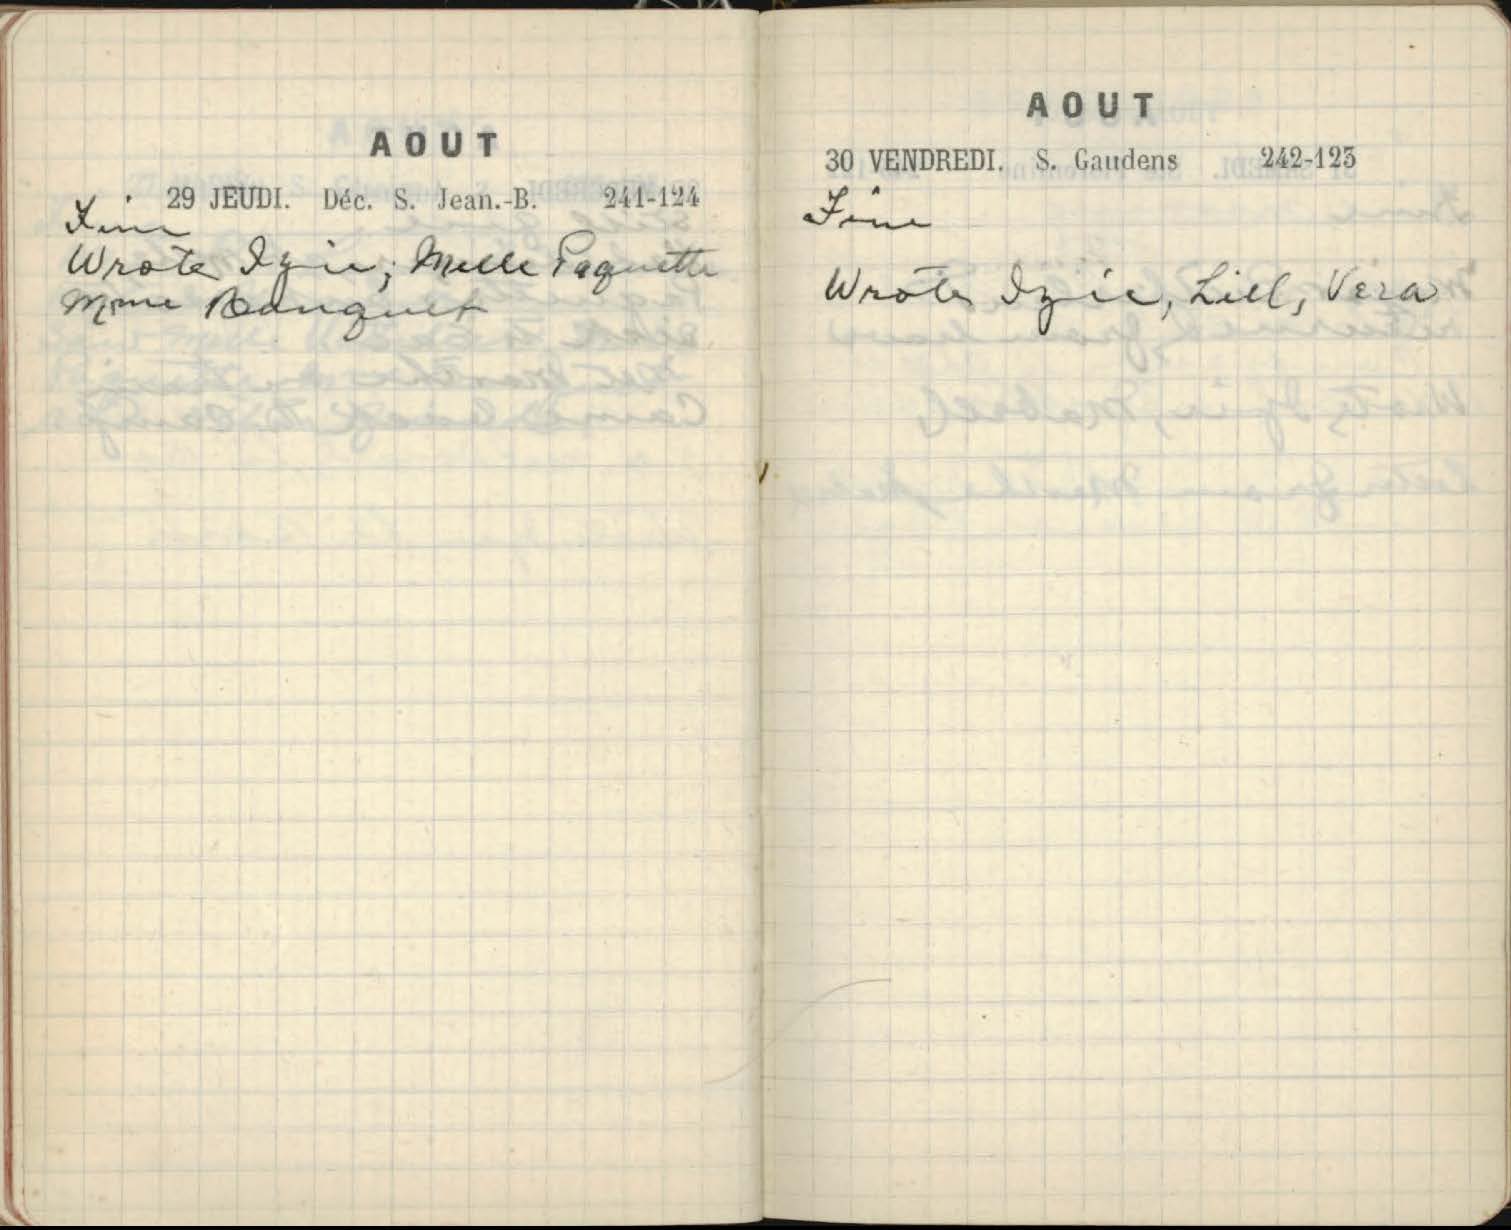 AOUT
29 JEUDI. Déc. S. Jean.-B. 241-124
Fine
Wrote Izie; Melle Paquette
Mme Banquet
AOUT
30 VENDREDI. S. Gaudens 242-123
Fine
Wrote Izie, Lill, Vera